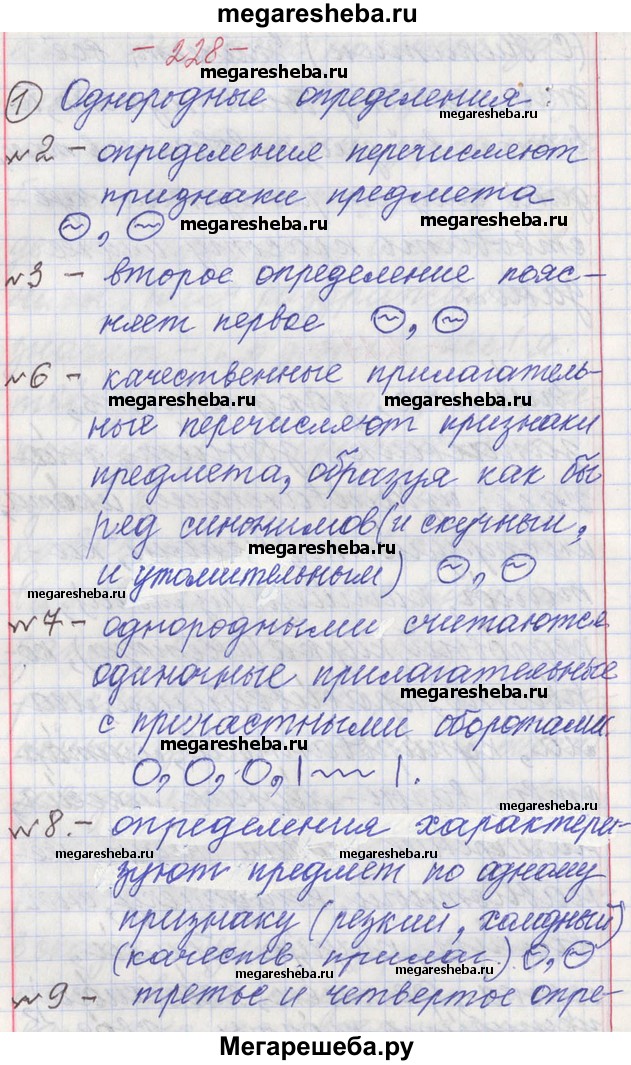 megaresheba.ru
- 228 -
megaresheba.ru
① Однородные определения:
megaresheba.ru
№2 - определения перечисляют
признаки предмета
megaresheba.ru megaresheba.ru
№3 - второе определение пояс-
няет первое
megaresheba.ru
№6 - качественные прилагатель-
megaresheba.ru
ные перечисляют признаки
предмета, образуя как бы
ряд синонимов (и скучным,
megaresheba.ru
и утомительным)
megaresheba.ru
№7 - однородными считаются
одиночные прилагательные
megaresheba.ru
с причастными оборотами.
megaresheba.ru
O, O, O, |~~~|.
№8. - определения характери-
megaresheba.ru megaresheba.ru
зуют предмет по одному
признаку (резкий, холодный)
(качеств. прилаг.)
megaresheba.ru
№9 - третье и четвертое опре-
Мегарешеба.ру